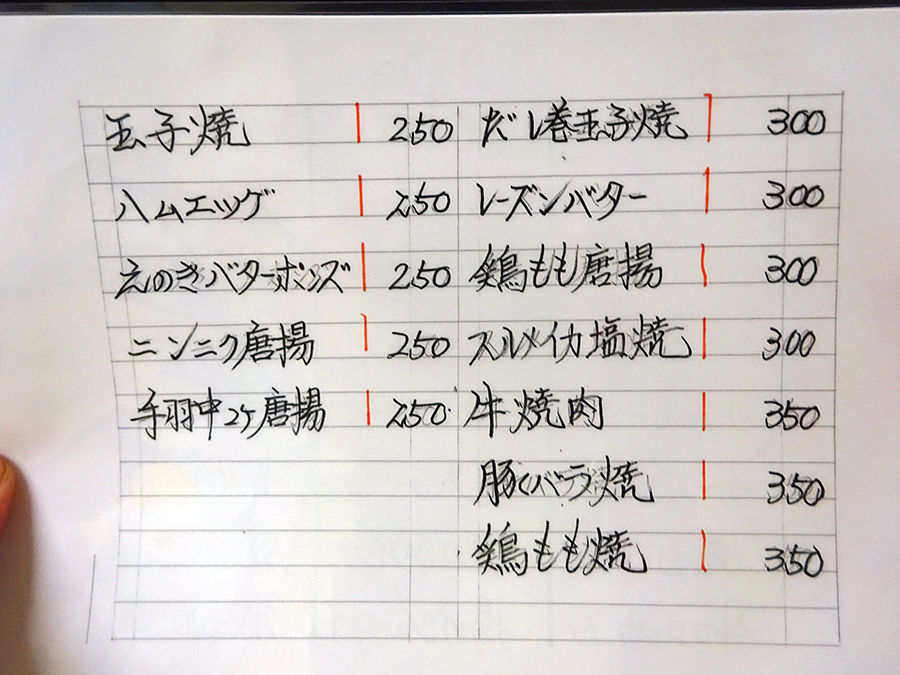 玉子焼 250
ハムエッグ 250
えのきバターポンズ 250
ニンニク唐揚 250
手羽中2ケ唐揚 250
だし巻玉子焼 300
レーズンバター 300
鶏もも唐揚 300
スルメイカ塩焼 300
牛焼肉 350
豚バラ焼 350
鶏もも焼 350